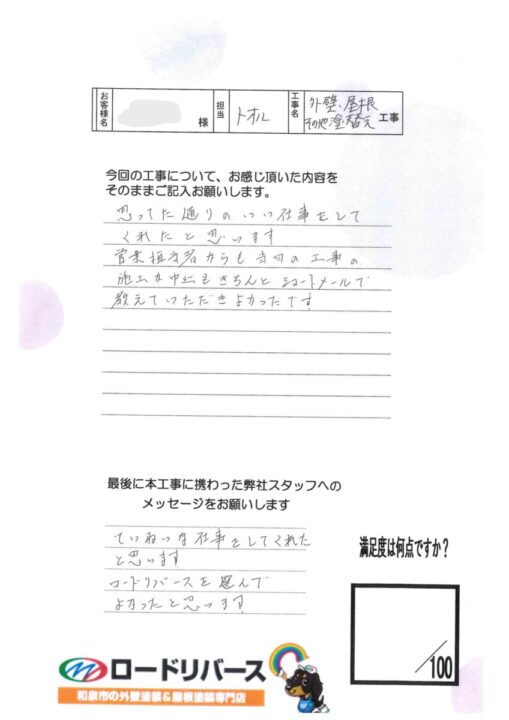 お客様名 様 担当 トオル 工事名 外壁、屋根
その他塗替え 工事
今回の工事について、お感じ頂いた内容を
そのままご記入お願いします。
思ってた通りのいい仕事をして
くれたと思います
営業担当者からも当日の工事の
施工か中止もきちんとショートメールで
教えていただきよかったです
最後に本工事に携わった弊社スタッフへの
メッセージをお願いします
ていねいな仕事をしてくれた
と思います
ロードリバースを選んで
よかったと思います
満足度は何点ですか?
/100
ロードリバース
和泉市の外壁塗装&屋根塗装専門店